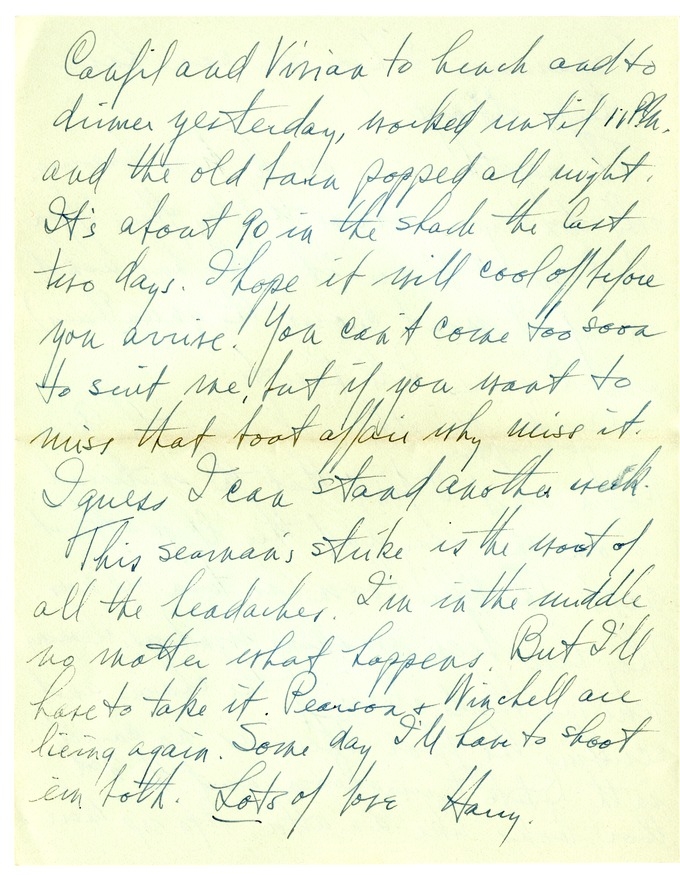 Canfil and Vivian to lunch and to
dinner yesterday, worked until 11 P.M.
and the old barn popped all night.
It's about 90 in the shade the last
two days. I hope it will cool off before
you arrive. You can't come too soon
to suit me, but if you want to
miss that boat affair why miss it.
I guess I can stand another week.
This seaman's strike is the worst of
all the headaches. I'm in the middle
no matter what happens. But I'll
have to take it. Pearson & Winchell are
lieing again. Some day I'll have to shoot
em both. Lots of love Harry.